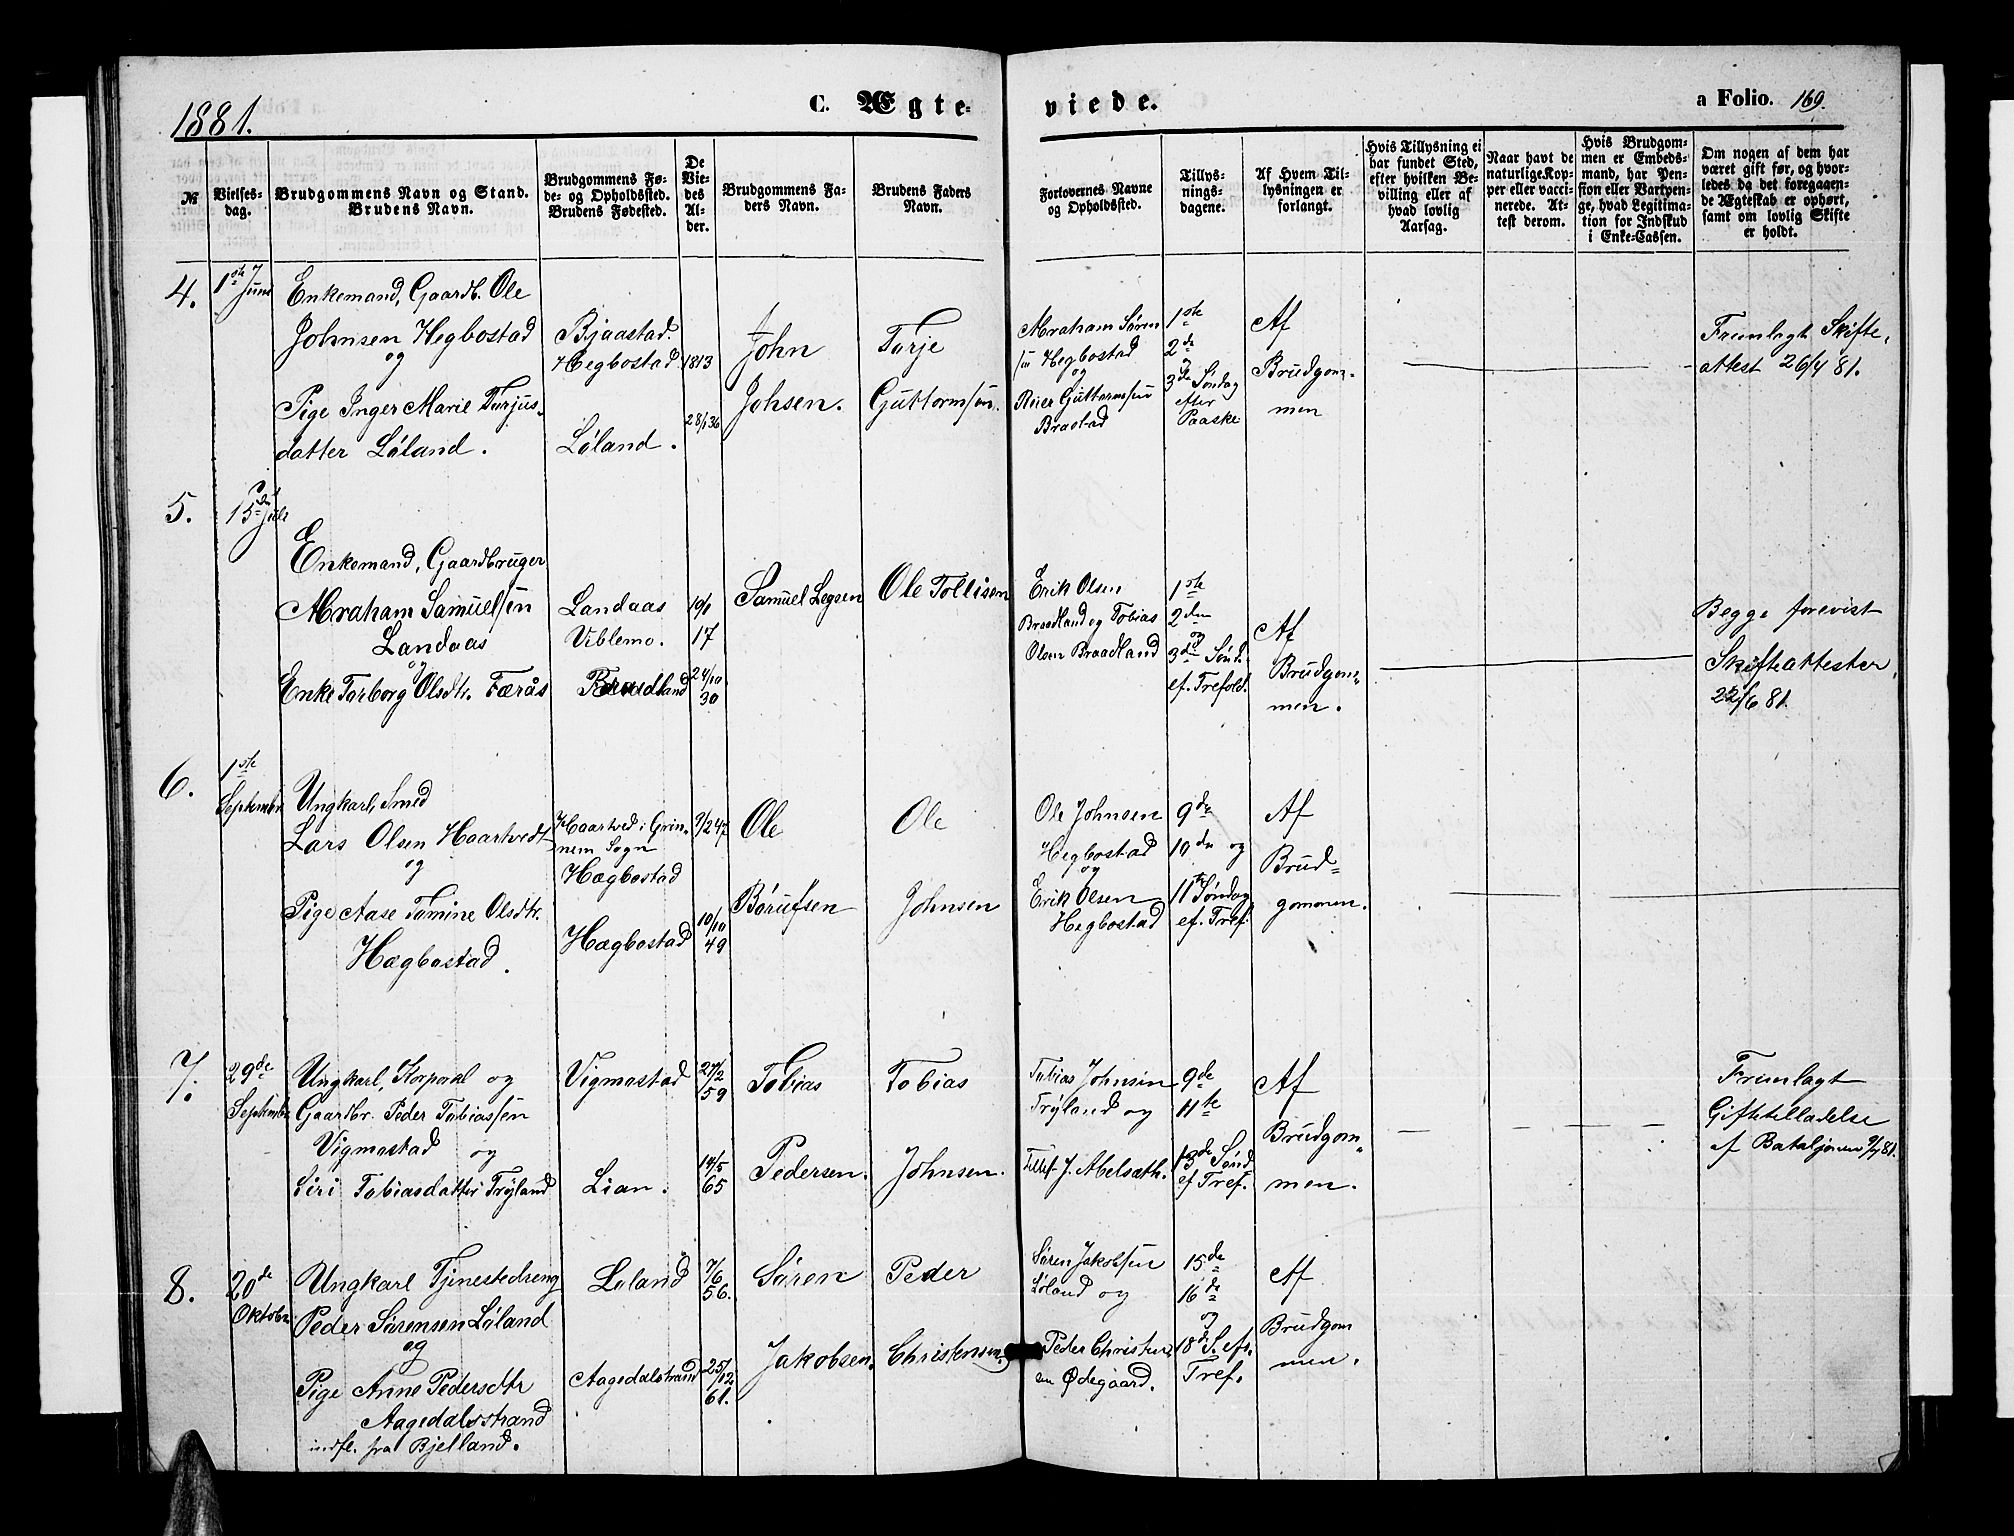 1881.
C. Ægte-
viede.
a Folio. 169.
№
Vielses-
dag.
Brudgommens Navn og Stand.
Brudens Navn.
Brudgommens Fø-
de- og Opholdsted.
Brudens Fødested.
De
Vie-
des
Al-
der.
Brudgommens Fa-
ders Navn.
Brudens Faders
Navn.
Forlovernes Navne
og Opholdsted.
Tillys-
nings-
dagene.
Af Hvem Til-
lysningen er
forlangt.
Hvis Tillysning ei
har fundet Sted,
efter hvilken Be-
villing eller af
hvad lovlig
Aarsag.
Naar havt de
naturlige Kop-
per eller vacci-
nerede. At-
test derom.
Hvis Brudgom-
men er Embeds-
mand, har Pen-
sion eller Vartpen-
ge, hvad Legitima-
tion for Indskud
i Enke-Cassen.
Om nogen af dem har
været gift før, og hvor-
ledes da det foregaaen-
de Ægteskab er ophørt,
samt om lovlig Skifte
er holdt.
4.
1ste Juni
Enkemand, Gaardb. Ole
Johnsen Hegbostad
og
Pige Inger Marie Torjus-
datter Løland.
Bjaastad.
Hegbostad
Løland.
1813
28/1 36
John
Johsen.
Torje
Guttormsen.
Abraham Søren
sen Hegbostad
og
Reier Guttormsen
Brastad
1ste
2de
og
3de Søndag
efter
Paaske
Af
Brudgom-
men
Fremlagt Skifte-
attest 26/4 81.
5.
15de Juli
Enkemand, Gaardbruger
Abraham Samuelsen
Landaas
og
Enke Torborg Olsdtr. Færås
Landaas
Viblemo.
Braadland
19/1
17
24/10
30
Samuel Legsen
Ole Tollisen
Erik Olsen
Braadland og Tobias
Olsen Braadland
1ste
2den
og
3de Sønd.
ef. Trefold.
Af
Brudgom-
men.
Begge forevist
Skifteattester.
22/6 81.
6.
1ste
Septembr
Ungkarl, Smed
Lars Olsen Haartvedt
og
Pige Aase Tomine Olsdtr.
Hægbostad.
Haartved i Grin-
nem Sogn
Hægbostad
Hægbostad
9/2 47
10/10
49
Ole
Børufsen
Ole
Johnsen
Ole Johnsen
Hegbostad
og
Erik Olsen
Hegbostad
9de
10de og
11te Søndag
ef. Tref.
Af
Brud-
gommen.
7.
29de
Septembr
Ungkarl, Korporal og
Gaardbr. Peder Tobiassen
Vigmostad og
Siri Tobiasdatter Trøland
Vigmostad
Lian.
27/2
59
14/5
65
Tobias
Pedersen.
Tobias
Johnsen.
Tobias Johnsen
Trøland og
Tellef J. Abelsæth.
9de
11te
13de Sønd
ef Tref.
Af
Brudgom-
men.
Fremlagt
Giftetilladelse
af Bataljonen 9/7 81.
8.
20de
Oktobr
Ungkarl Tjenestedreng
Peder Sørensen Løland
og
Pige Anne Pedersdtr
Aagedalsstrand
indfl. fra Bjelland.
Løland
Aagedalstrand
7/6
56.
25/12
61.
Søren
Jakobsen.
Peder
Christensen.
Søren Jakobsen
Løland og
Peder Christen-
sen Ødegaard.
15de
16de
og
18de S. eft.
Tref.
Af
Brudgom
men.